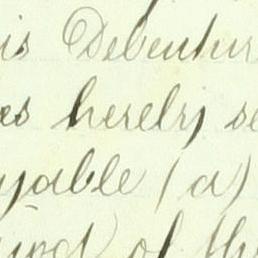 is Debentur
es hereby se
yable (a)
of th